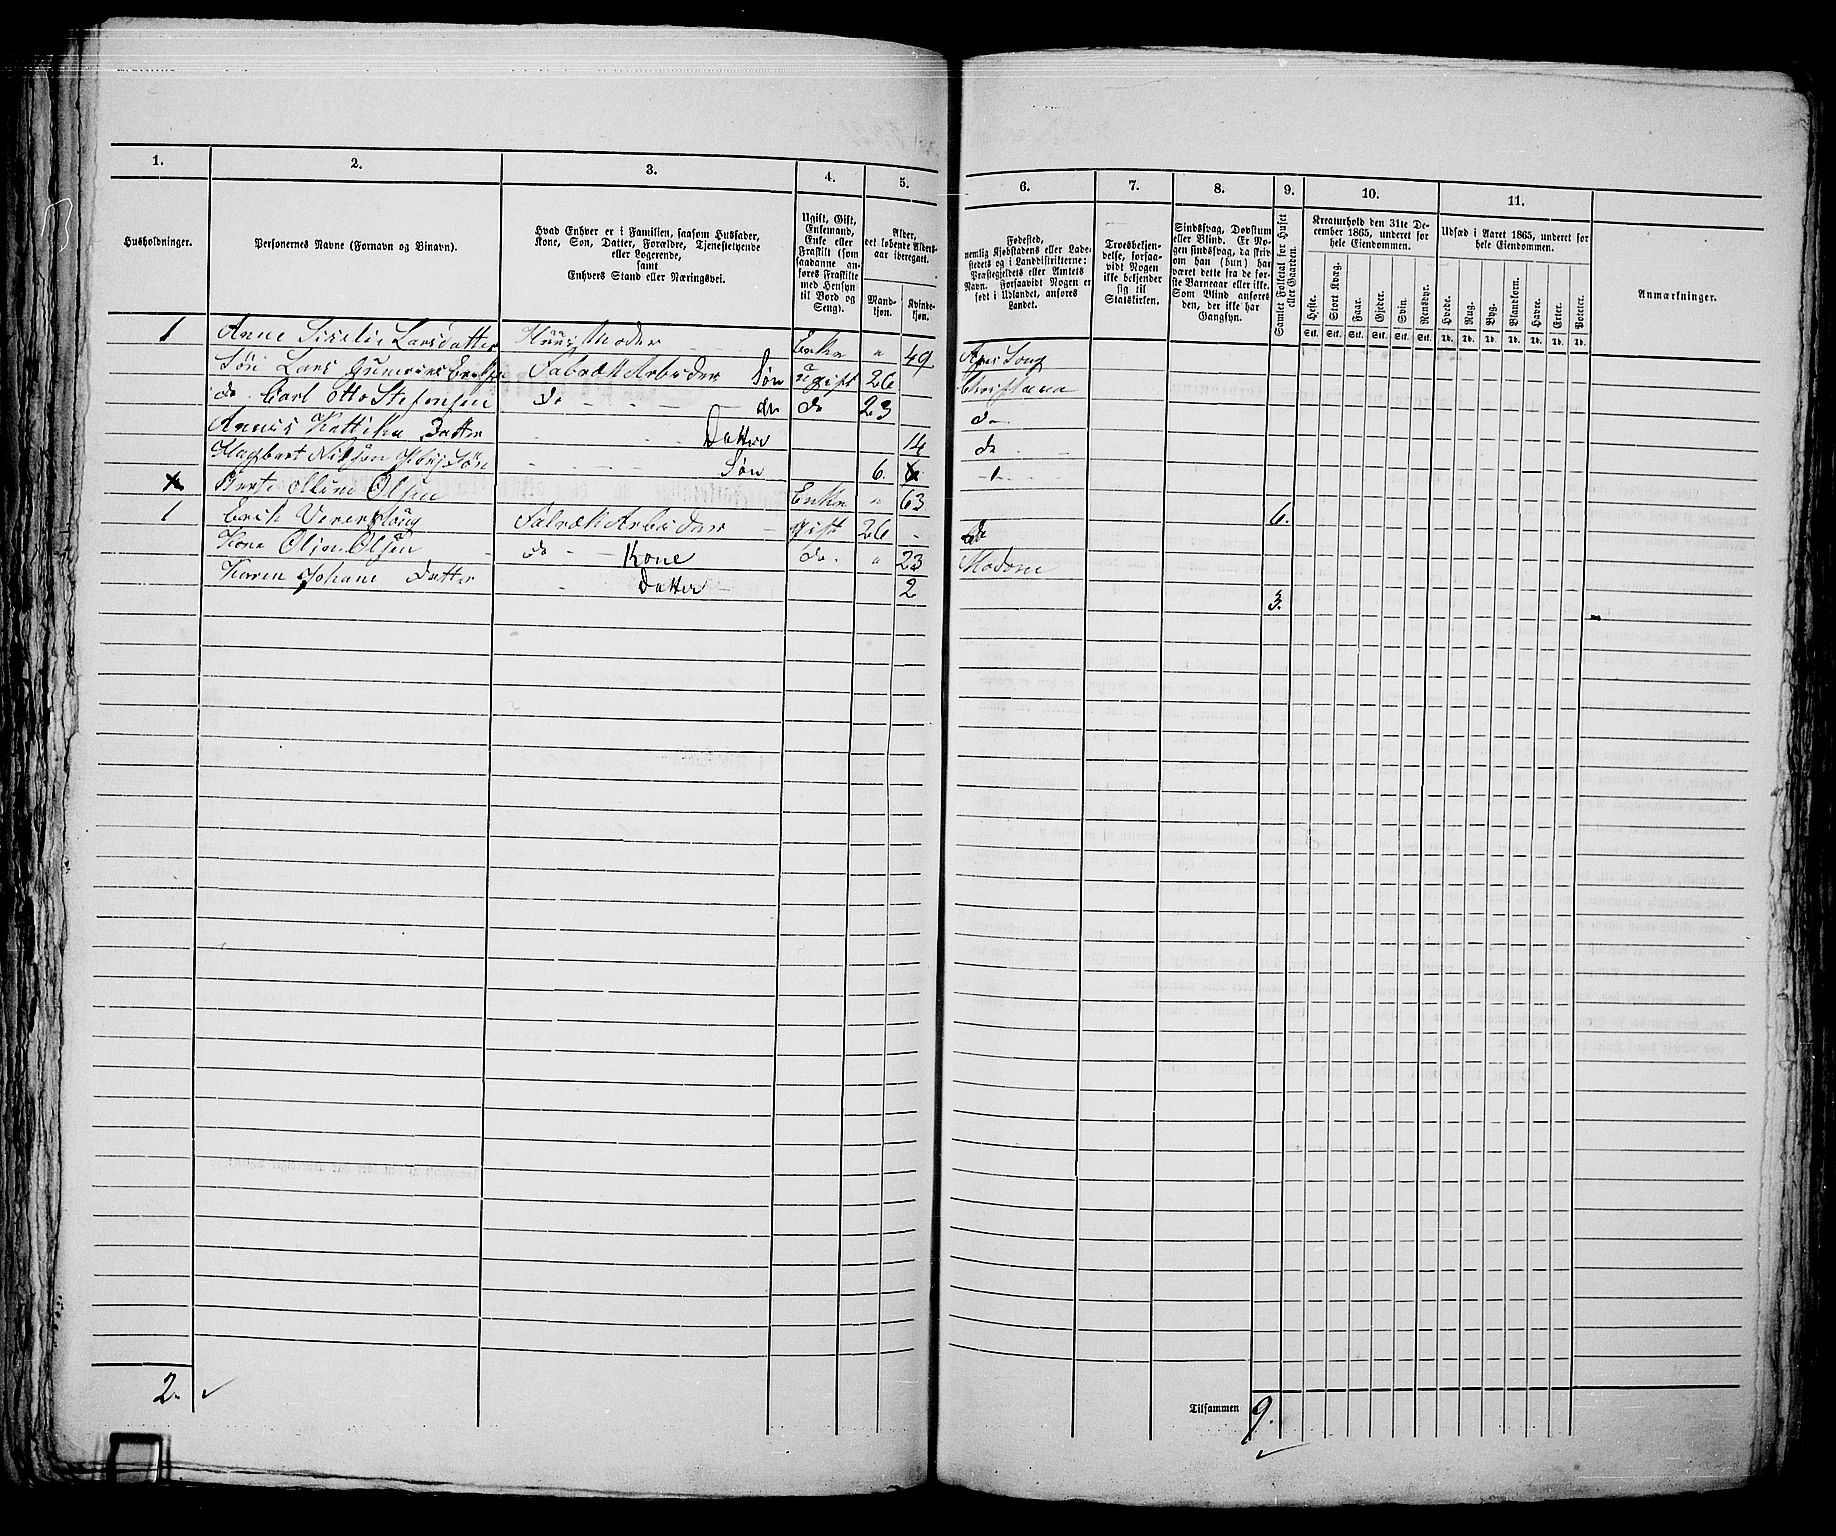 1. 2. 3. 4. 5. 6. 7. 8. 9. 10. 11.
Husholdninger.
Personernes Navne (Fornavn og Binavn).
Hvad Enhver er i Familien, saasom Husfader,
Kone, Søn, Datter, Forældre, Tjenestetyende
eller Logerende,
samt
Enhvers Stand eller Næringsvei.
Ugift, Gift,
Enkemand,
Enke eller
Fraskilt (som
saadanne an-
føres Fraskilte
med Hensyn
til Bord og
Seng).
Alder,
det løbende Alders-
aar iberegnet.
Mand-
kjøn.
Kvinde-
kjøn.
Fødested,
nemlig Kjøbstadens eller Lade-
stedets og i Landdistrikterne:
Præstegjeldets eller Amtets
Navn. Forsaavidt Nogen er
født i Udlandet, anføres
Landet.
Troesbekjen-
delse, forsaa-
vidt Nogen
ikke bekjender
sig til
Statskirken.
Sindssvag, Døvstum
eller Blind. Er No-
gen sindssvag, da skriv
om han (hun) har
været dette fra de før-
ste Barneaar eller ikke.
Som Blind anføres
den, der ikke har
Gangsyn.
Samlet Folketal for Huset
eller Gaarden.
Kreaturhold den 31te De-
cember 1865, underet for
hele Eiendommen.
Heste. Stort Kvæg. Faar. Gjeder. Svin. Rensdyr.
Stk. Stk. Stk. Stk. Stk. Stk.
Udsæd i Aaret 1865, underet for
hele Eiendommen.
Hvede. Rug. Byg. Blandkorn. Havre. Erter. Poteter.
Td. Td. Td. Td. Td. Td. Td.
Anmærkninger.
1 Anne Sisilie Larsdatter Huus Moder Enke " 49
Søn Lars Fabræk Arbeider Søn ugift 26 Christiania
do Carl Otto Stefensen do do do 23 do
Datter Datter 14 do
Nilsen Søn Søn 6.
Olsen Enke " 63
1 Erik Fabræk Arbeider gift 26 6.
Kone Olsen do Kone do. " 23
Karen Johane Datter Datter 2 3.
2.
Tilsammen 9.